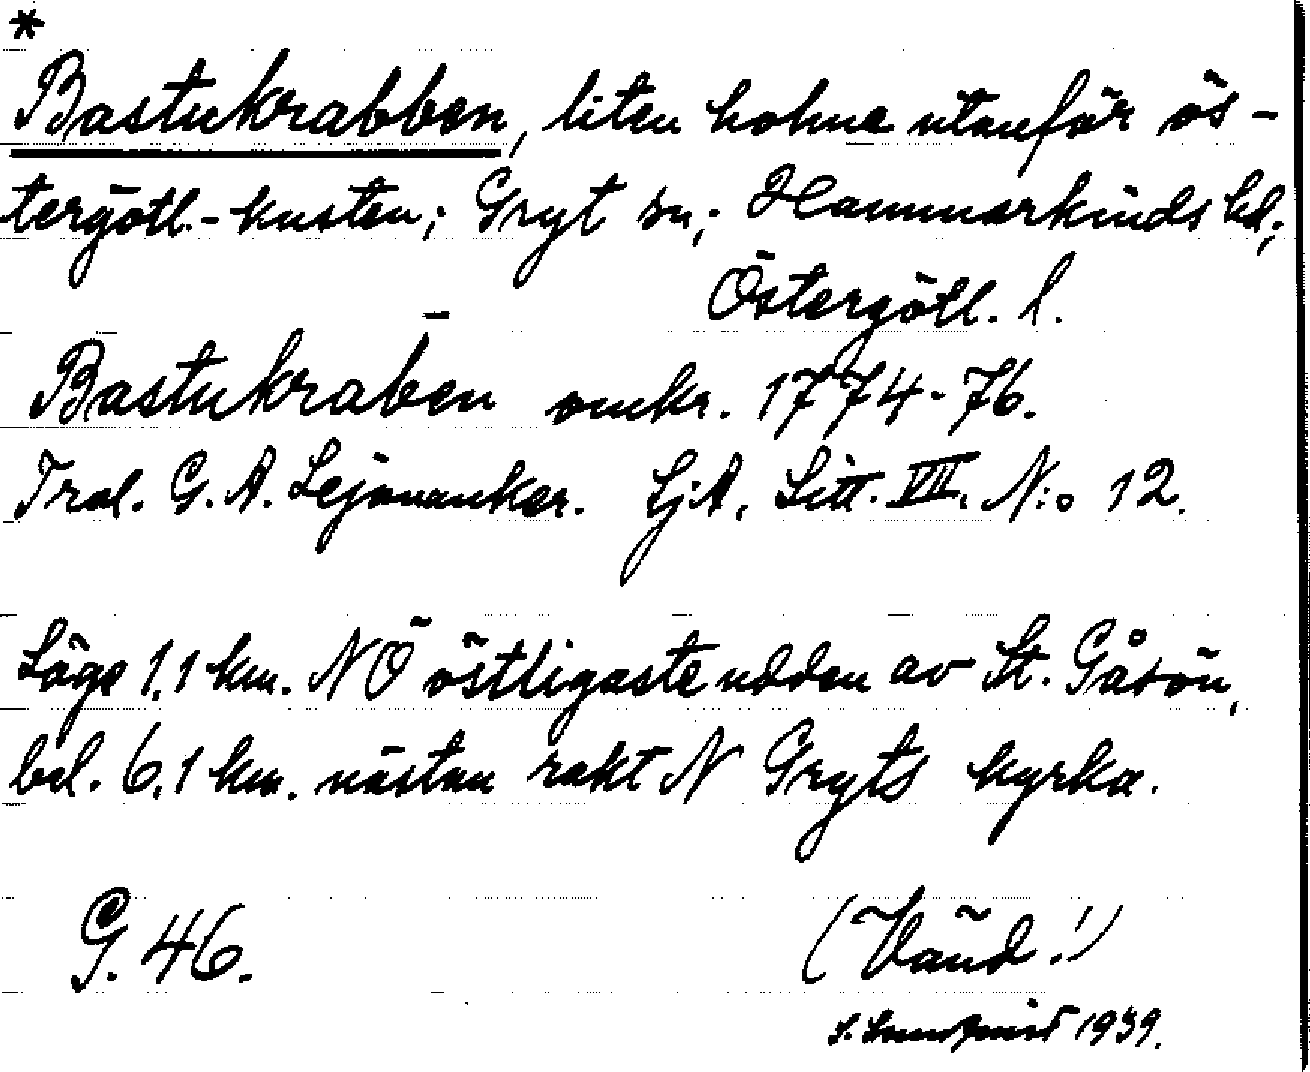 *
Bastukrabben, liten holme utanför ös-
tergötl.-kusten; Gryt sn; Hammarkinds hd;
Östergötl. l.
Bastukraben omkr. 1774-76.
Tral. G. A. Lejonanker. LjA. Litt. VII. N:o 12.
Läge 1,1 km. NÖ östligaste udden av St. Gåsön,
bel. 6,1 km. nästan rakt N Gryts kyrka.
G. 46.
(Vänd!)
1939.